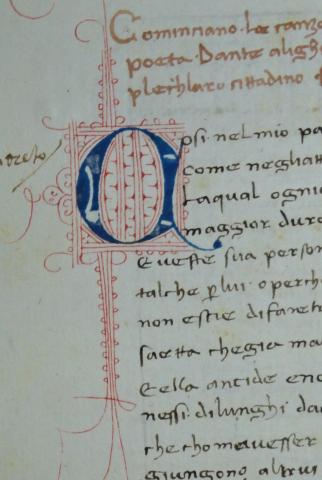 Cominciano. Le canzo
poeta. Dante aligh
pleichlaro cittadino
Cosi nel mio pa
come neghatt
Laqual ogniu
maggior dure
E veste sua person
tal che p lui. o perch
non escie di faret
saetta che gia ma
Et ella ancide en
nessi. di lunghi da
che chomavesser
giungono altrui